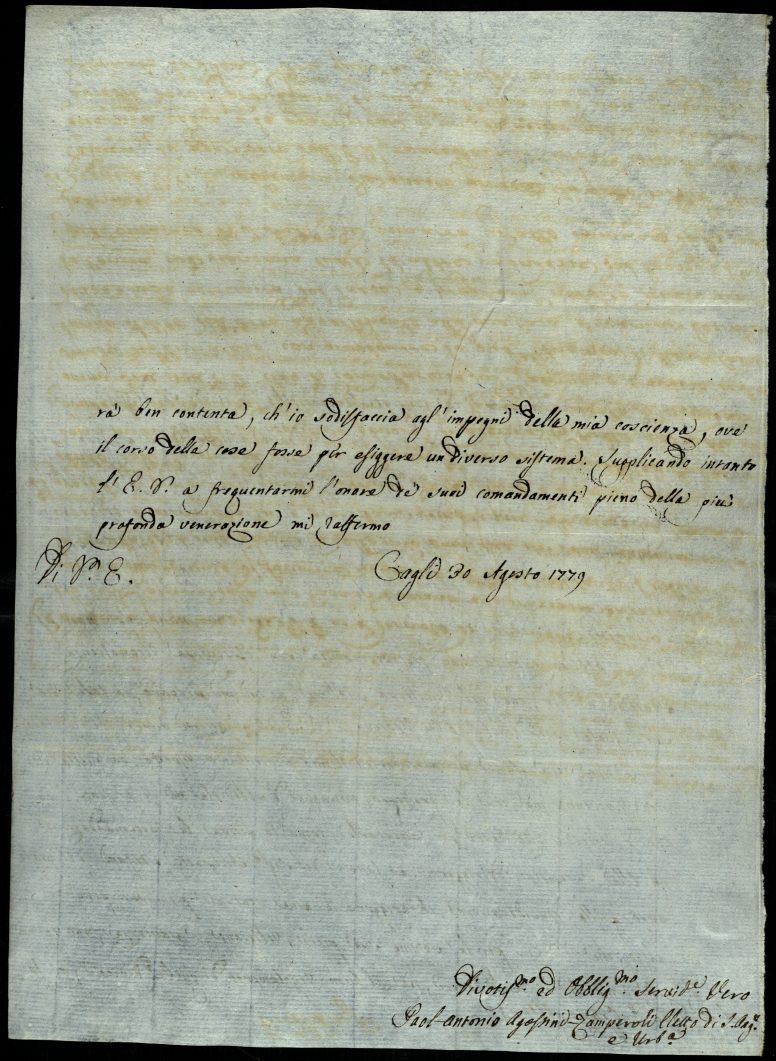 rà ben contenta, ch'io sodisfaccia agl'impegni della mia coscienza, ove
il corso della cose fosse per esiggere un diverso sistema. Supplicando intanto
l'E. V. a frequentarmi l'onore de' suoi comandamenti pieno della più
profonda venerazione mi raffermo
Di V. E. Cagli 30 Agosto 1779
Divotis.mo ed Obblig.mo Servid.e Vero
Paol-Antonio Agostini-Zamperoli Eletto di S. Ang.
e Urb.a